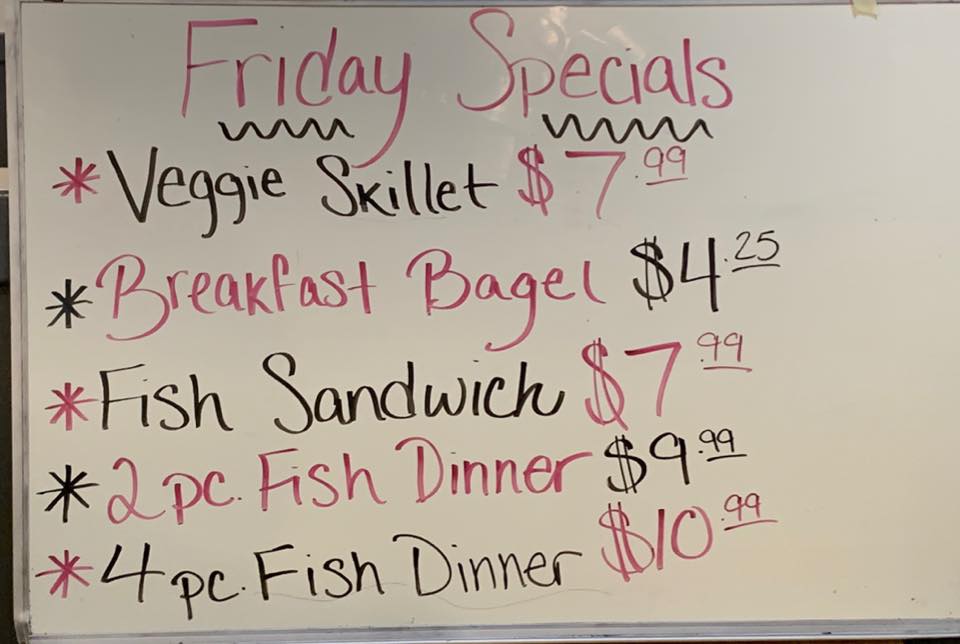 Friday Specials
* Veggie Skillet $7.99
* Breakfast Bagel $4.25
* Fish Sandwich $7.99
* 2 pc. Fish Dinner $9.99
* 4 pc. Fish Dinner $10.99